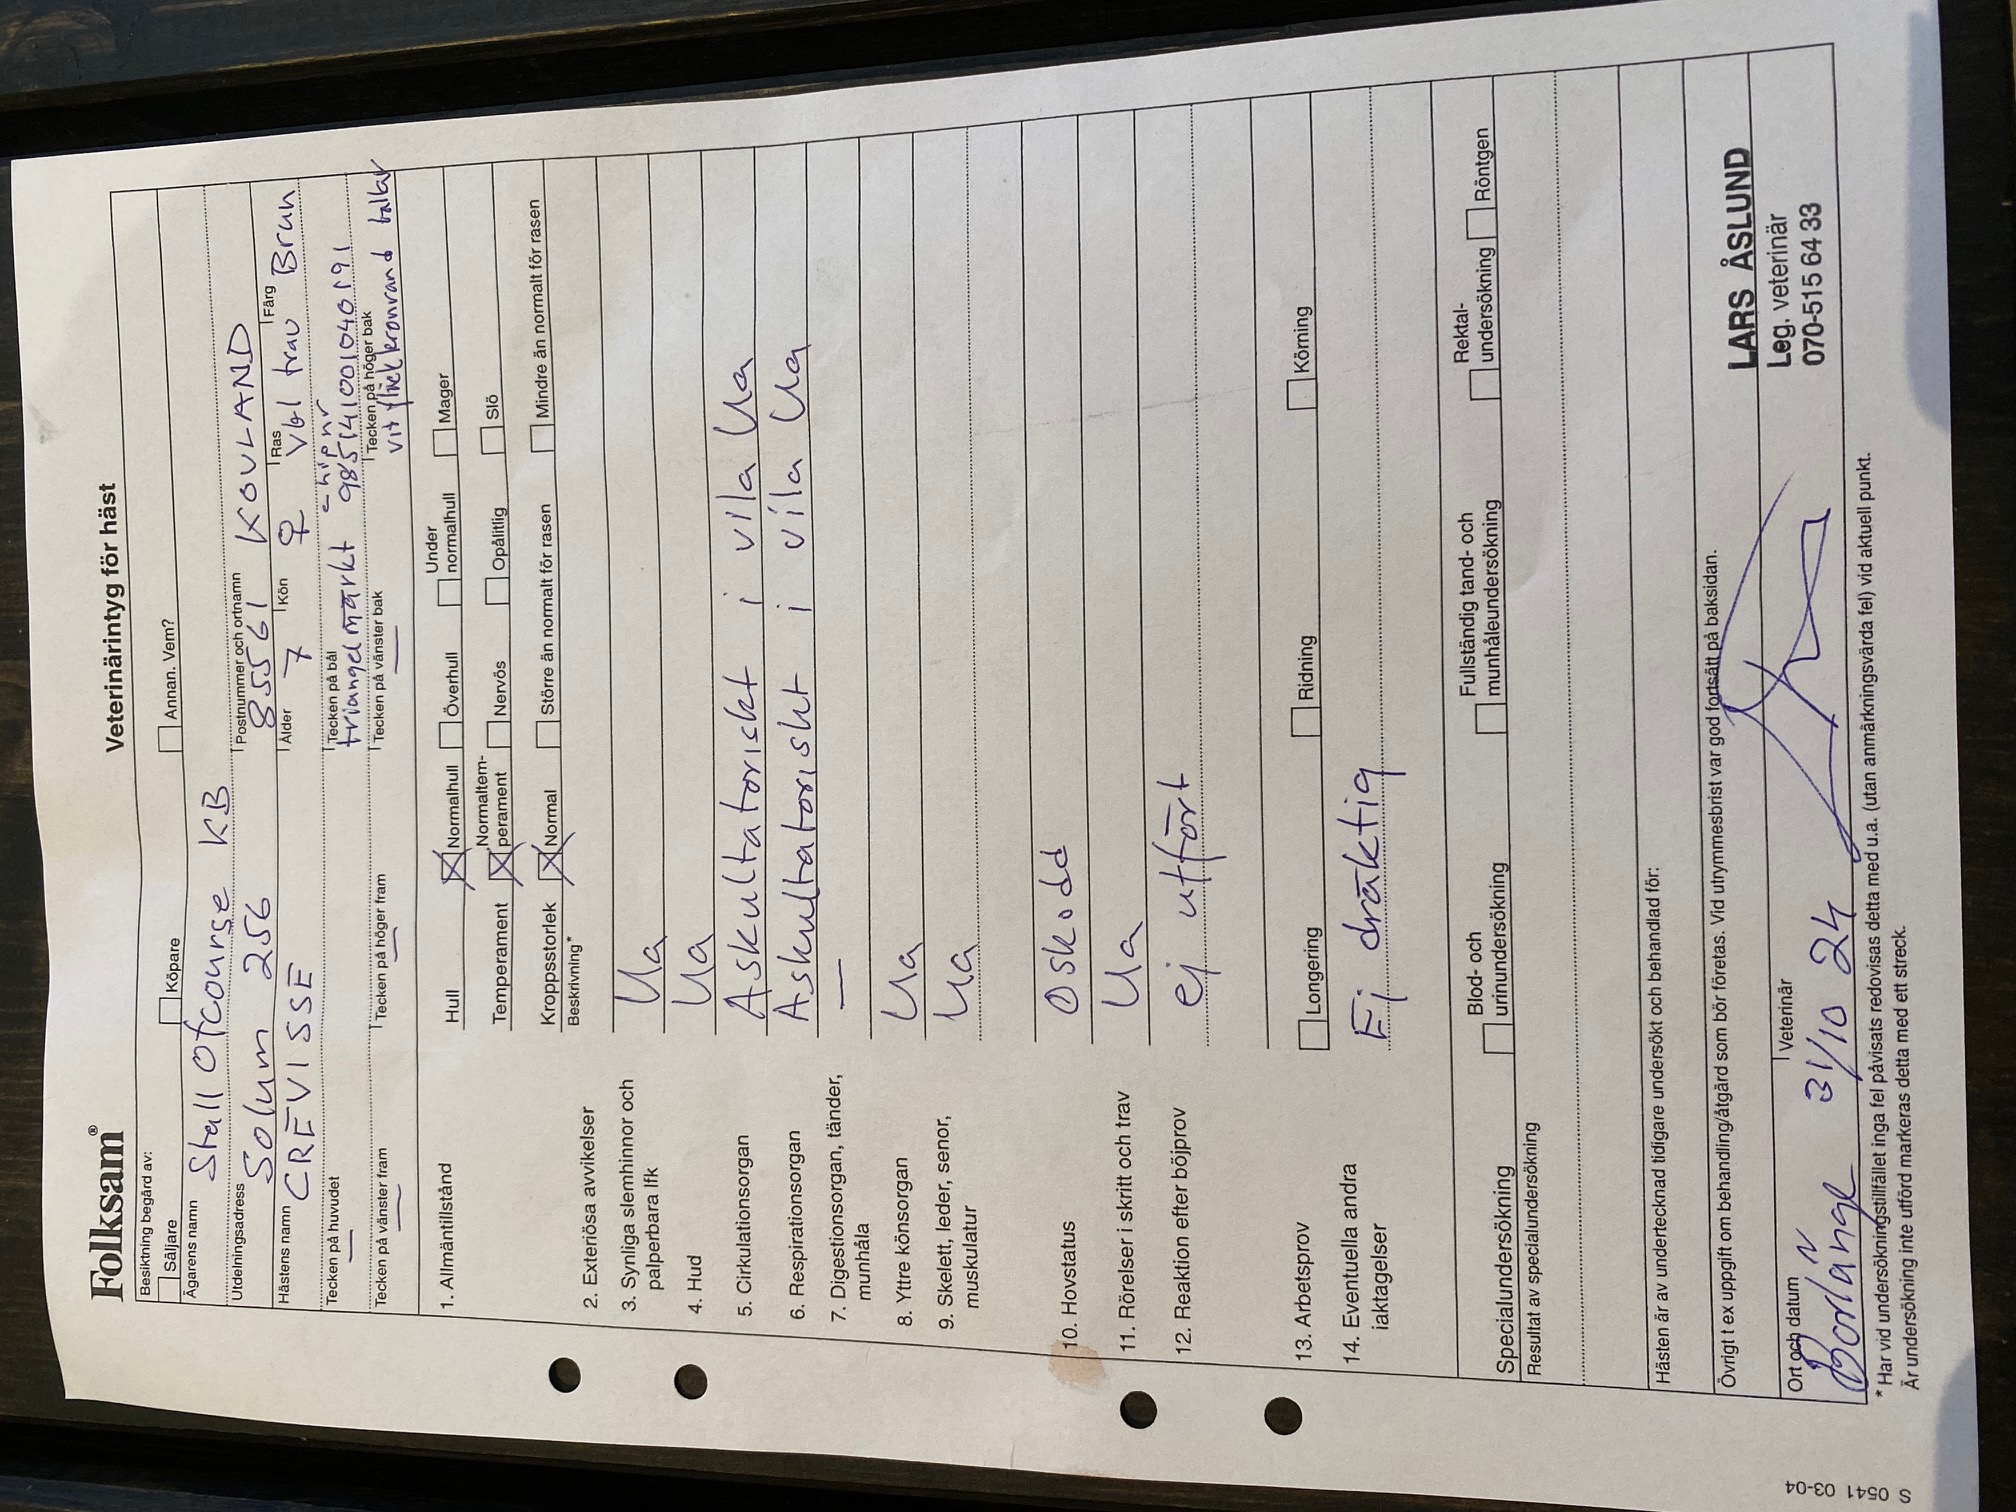 Folksam®
Veterinärintyg för häst
Besiktning begärd av:
Säljare Köpare Annan. Vem?
Ägarens namn Stall Ofcourse KB
Utdelningsadress Postnummer och ortnamn
Solum 256 85561 KOVLAND
Hästens namn Ålder Kön Ras Färg
CREVISSE 7 ♀ Vbl trav Brun
Tecken på huvudet Tecken på bål chipnr
— triangelmärkt 985141001040191
Tecken på vänster fram Tecken på höger fram Tecken på vänster bak Tecken på höger bak
— — — vit fläck kronrand ballar
1. Allmäntillstånd Hull ☒ Normalhull Överhull Under normalhull Mager
Temperament ☒ Normaltem-perament Nervös Opålitlig Slö
Kroppsstorlek ☒ Normal Större än normalt för rasen Mindre än normalt för rasen
Beskrivning*
2. Exteriösa avvikelser
3. Synliga slemhinnor och palperbara lfk Ua
4. Hud Ua
5. Cirkulationsorgan Askultatoriskt i vila Ua
6. Respirationsorgan Askultatoriskt i vila Ua
7. Digestionsorgan, tänder, munhåla —
8. Yttre könsorgan Ua
9. Skelett, leder, senor, muskulatur Ua
10. Hovstatus Oskodd
11. Rörelser i skritt och trav Ua
12. Reaktion efter böjprov ej utfört
13. Arbetsprov Longering Ridning Körning
14. Eventuella andra iaktagelser Ej dräktig
Specialundersökning Blod- och urinundersökning Fullständig tand- och munhåleundersökning Rektal-undersökning Röntgen
Resultat av specialundersökning
Hästen är av undertecknad tidigare undersökt och behandlad för:
Övrigt t ex uppgift om behandling/åtgärd som bör företas. Vid utrymmesbrist var god fortsätt på baksidan.
Ort och datum Veterinär
Borlänge 31/10 24
LARS ÅSLUND
Leg. veterinär
070-515 64 33
* Har vid undersökningstillfället inga fel påvisats redovisas detta med u.a. (utan anmärkningsvärda fel) vid aktuell punkt.
Är undersökning inte utförd markeras detta med ett streck.
S 0541 03-04